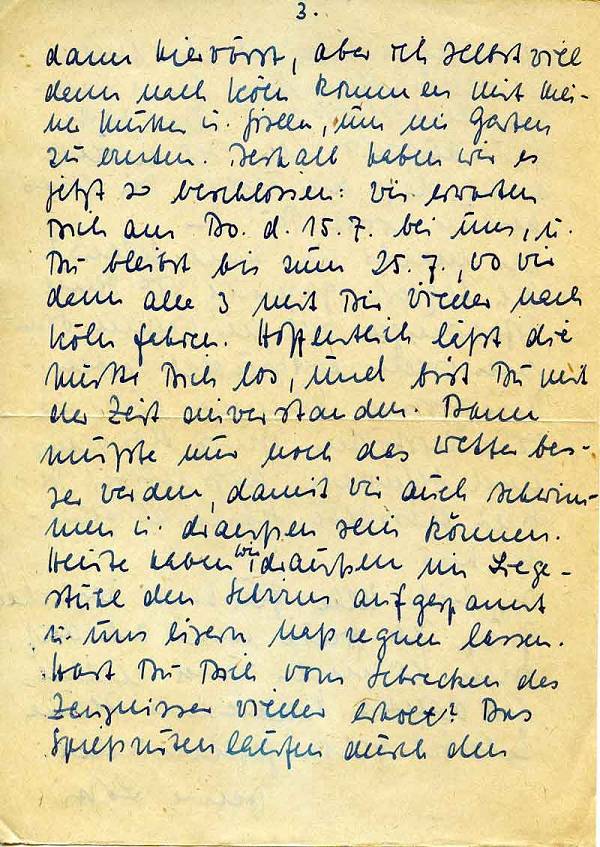 3.
dann hiervörst, aber ich selbst will
dann nach Köln kommen mit mei-
ner Mutter u. Gisela, um im Garten
zu ernten. Deshalb haben wir es
jetzt so beschlossen: wir erwarten
Dich am Do. d. 15.7. bei uns, u.
Du bleibst bis zum 25.7., wo wir
dann alle 3 mit Dir wieder nach
Köln fahren. Hoffentlich läßt die
Mutter Dich los, und bist Du mit
der Zeit einverstanden. Dann
müßte nur noch das Wetter bes-
ser werden, damit wir auch schwim-
men u. draußen sein können.
Heute haben wir draußen im Liege-
stuhl den Schirm aufgespannt
u. uns eisern naßregnen lassen.
Hast Du Dich vom Schrecken des
Zeugnisses wieder erholt? Das
Spießrutenlaufen durch den